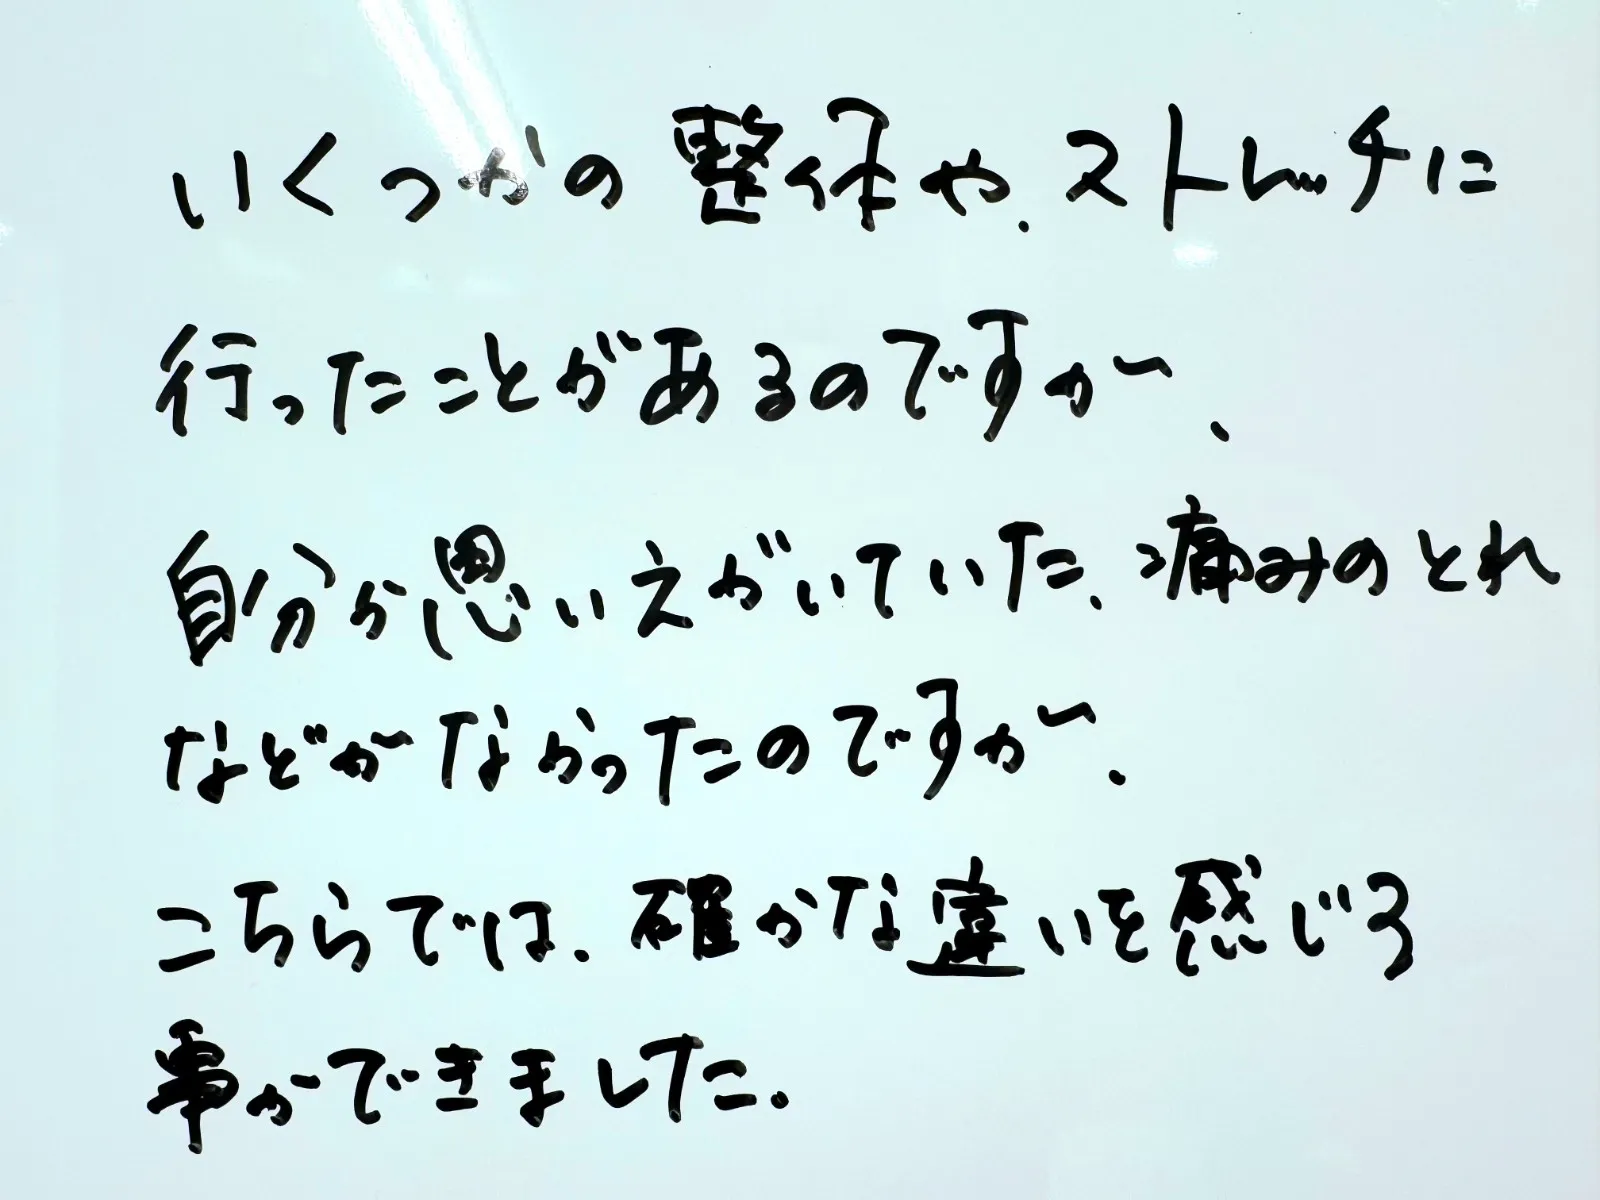 いくつかの整体や、ストレッチに
行ったことがあるのですが、
自分が思いえがいていた、痛みのとれ
などがなかったのですが、
こちらでは、確かな違いを感じる
事ができました。